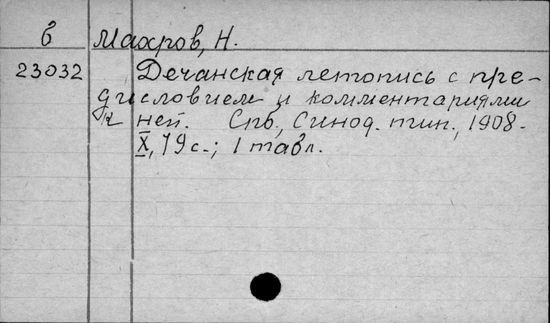 б Махров, Н.
23032 Дечанская летопись с пре-
дисловием и комментариями
к ней. Спб., Синод. тип., 1908.
X, 79 с.; 1 табл.